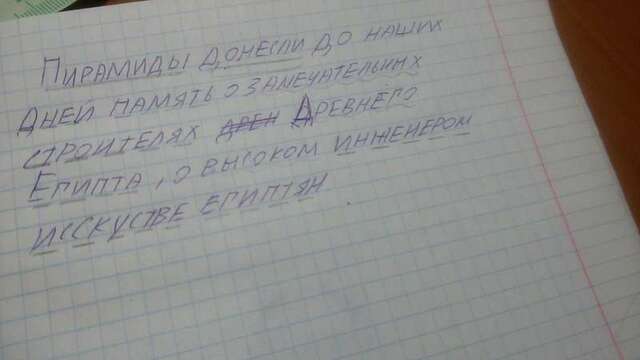 Пирамиды донесли до наших
дней память о замечательных
строителях Древнего
Египта, о высоком инженером
искусстве египтян